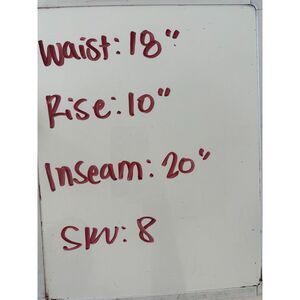 Waist: 18"
Rise: 10"
Inseam: 20"
SKU: 8